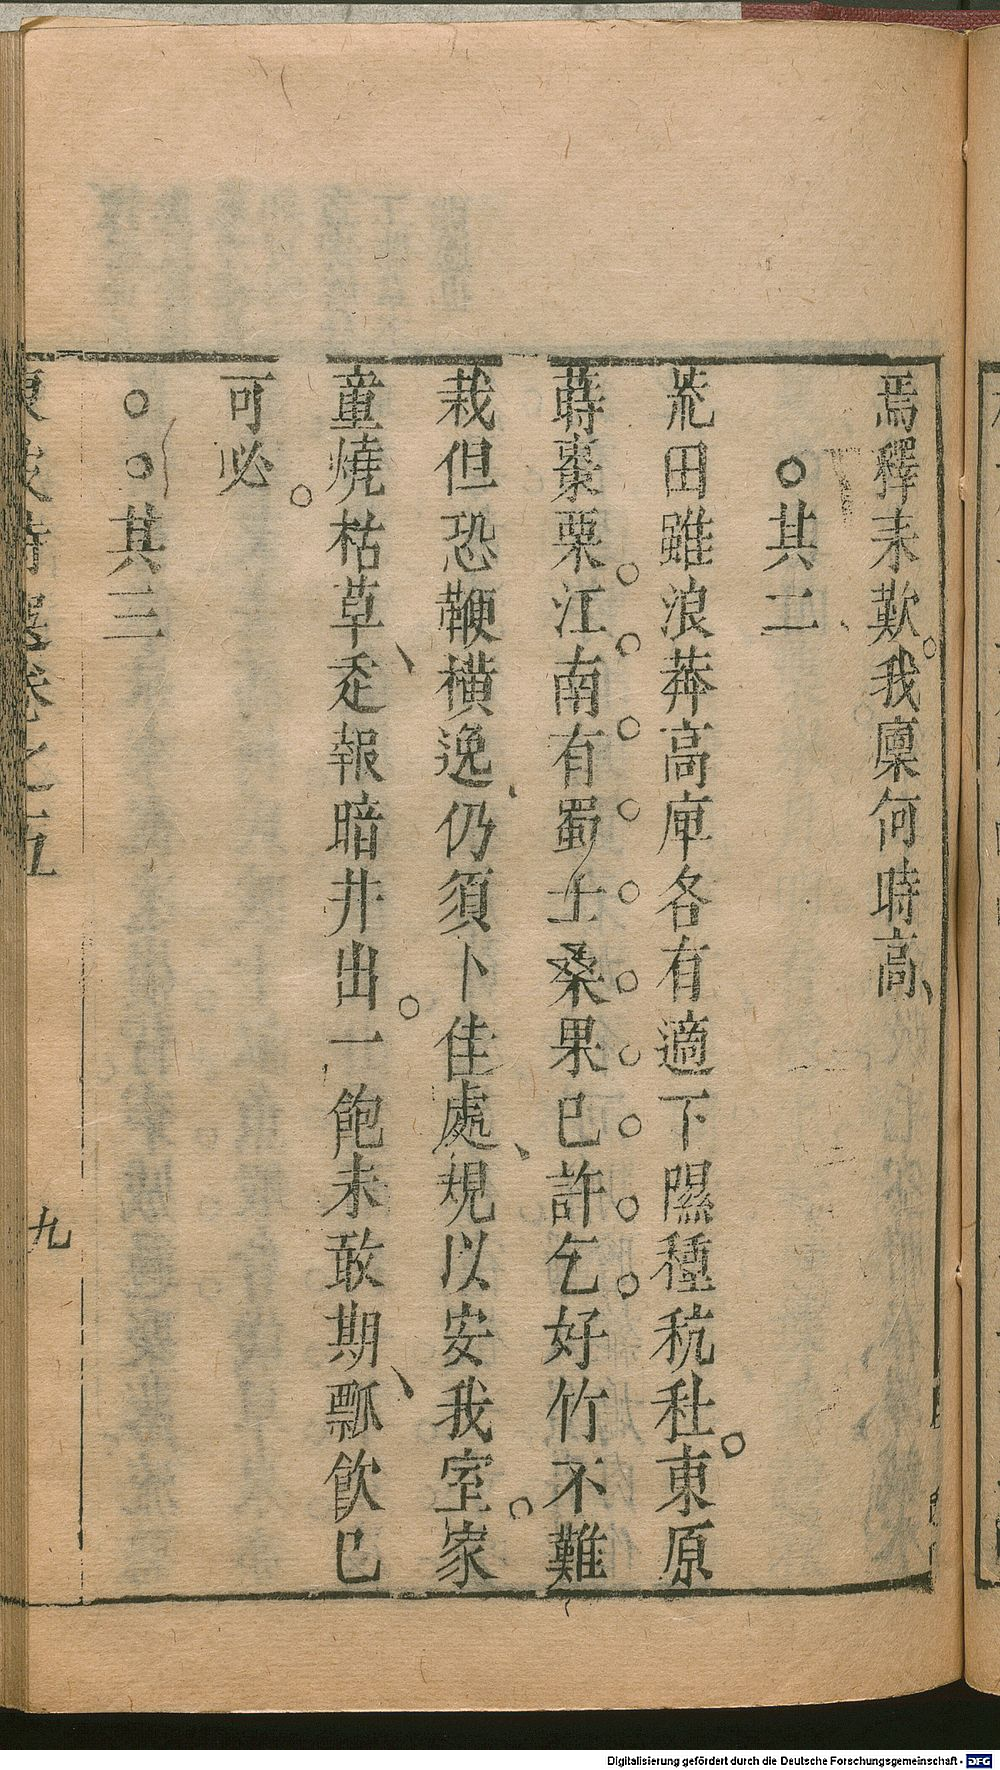 焉釋耒歎我廩何時高
其二
荒田雖浪莽高庳各有適下隰種秔秫東原
蒔棗栗江南有蜀士桑果已許乞好竹不難
栽但恐鞭橫逸仍須卜佳處規以安我室家
童燒枯草走報暗井出一飽未敢期瓢飲已
可必
其三
東坡詩選卷之五
九
Digitalisierung gefördert durch die Deutsche Forschungsgemeinschaft - DFG